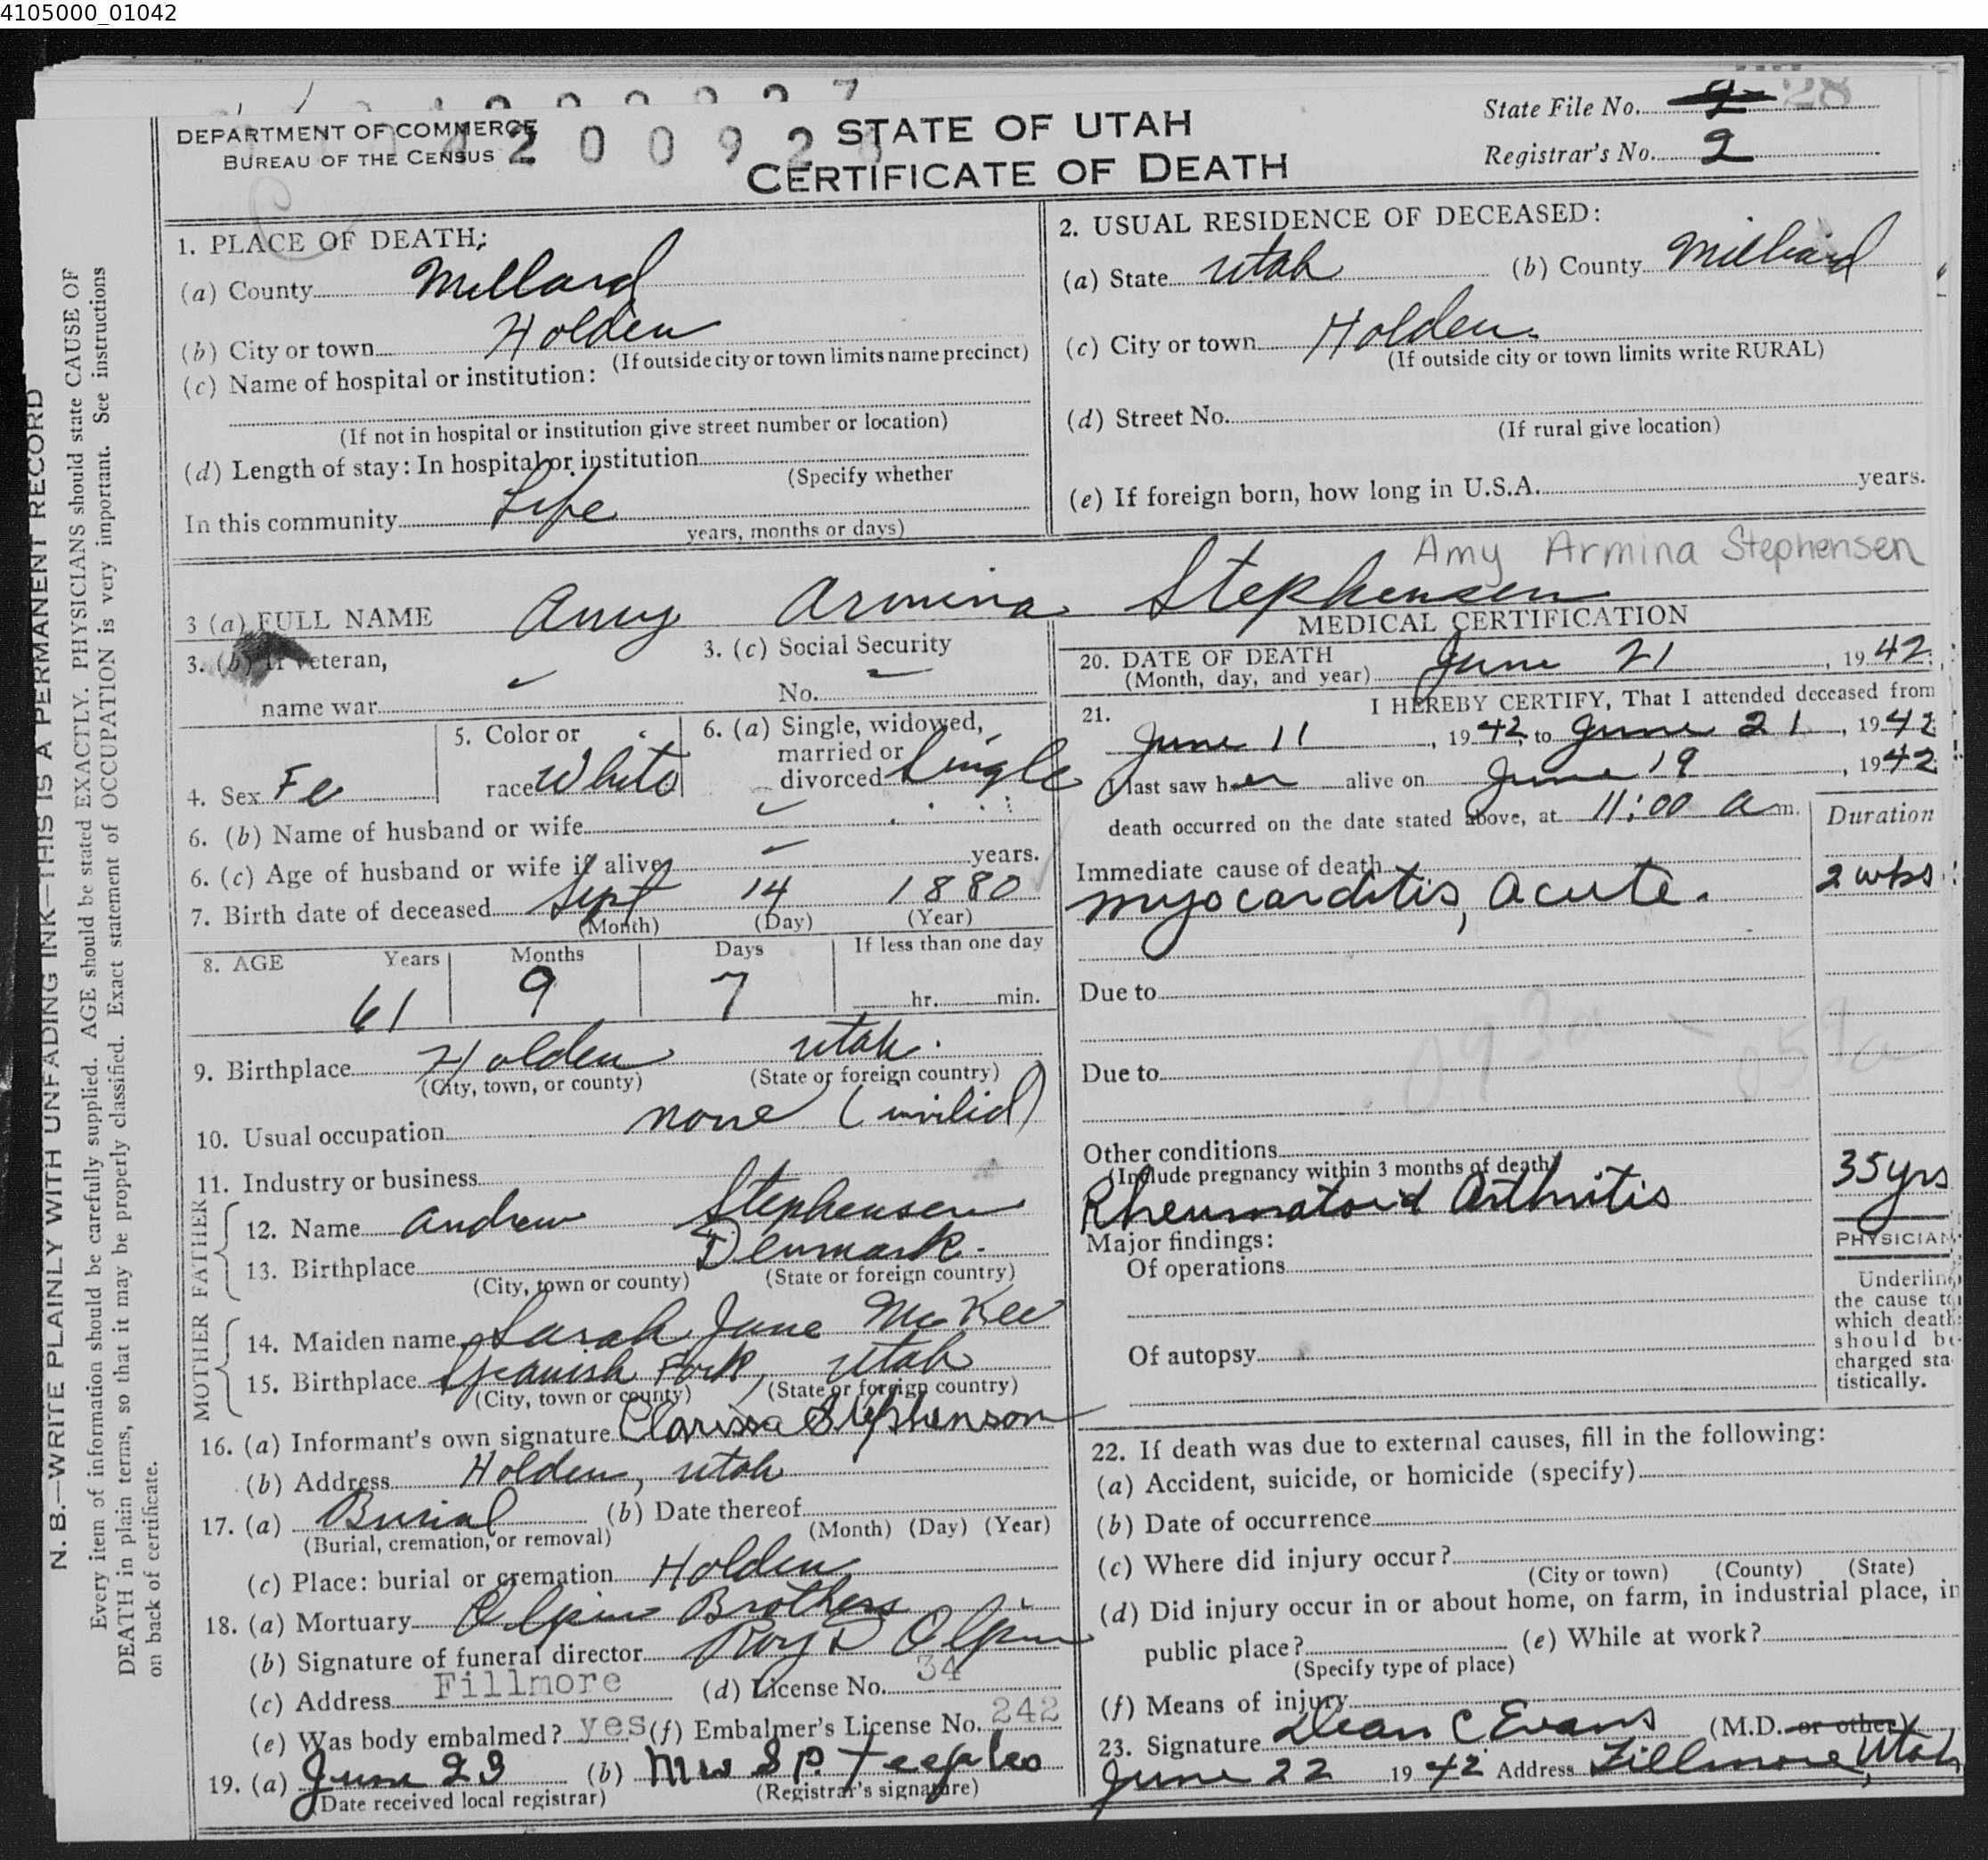 4105000_01042
DEPARTMENT OF COMMERCE
BUREAU OF THE CENSUS
STATE OF UTAH
CERTIFICATE OF DEATH
State File No. 28
Registrar's No. 2
1. PLACE OF DEATH:
(a) County Millard
(b) City or town Holden
(If outside city or town limits name precinct)
(c) Name of hospital or institution:
(If not in hospital or institution give street number or location)
(d) Length of stay: In hospital or institution
(Specify whether
In this community Life
years, months or days)
2. USUAL RESIDENCE OF DECEASED:
(a) State Utah (b) County Millard
(c) City or town Holden
(If outside city or town limits write RURAL)
(d) Street No.
(If rural give location)
(e) If foreign born, how long in U.S.A. years.
Amy Armina Stephensen
3 (a) FULL NAME Amy Armina Stephensen
3. (b) If veteran,
name war
3. (c) Social Security
No.
4. Sex Fe
5. Color or
race White
6. (a) Single, widowed,
married or
divorced Single
6. (b) Name of husband or wife
6. (c) Age of husband or wife if alive years.
7. Birth date of deceased Sept 14 1880
(Month) (Day) (Year)
8. AGE Years Months Days If less than one day
61 9 7 hr. min.
9. Birthplace Holden Utah.
(City, town, or county) (State or foreign country)
10. Usual occupation none (invilid)
11. Industry or business
FATHER
12. Name Andrew Stephensen
13. Birthplace Denmark.
(City, town or county) (State or foreign country)
MOTHER
14. Maiden name Sarah Jane McKee
15. Birthplace Spanish Fork, Utah
(City, town or county) (State or foreign country)
16. (a) Informant's own signature Clarissa Stephenson
(b) Address Holden, Utah
17. (a) Burial (b) Date thereof
(Burial, cremation, or removal) (Month) (Day) (Year)
(c) Place: burial or cremation Holden
18. (a) Mortuary Olpin Brothers
(b) Signature of funeral director Roy D Olpin
(c) Address Fillmore (d) License No. 34
(e) Was body embalmed? yes (f) Embalmer's License No. 242
19. (a) June 23 (b) Mrs S P. Teeples
(Date received local registrar) (Registrar's signature)
MEDICAL CERTIFICATION
20. DATE OF DEATH
(Month, day, and year) June 21, 1942
21. I HEREBY CERTIFY, That I attended deceased from
June 11, 1942, to June 21, 1942
I last saw her alive on June 19, 1942
death occurred on the date stated above, at 11:00 a m.
Duration
Immediate cause of death
myocarditis, acute. 2 wks
Due to
Due to
093a - 059a
Other conditions
(Include pregnancy within 3 months of death)
Rheumatoid Arthritis 35 yrs
Major findings:
Of operations
Of autopsy
PHYSICIAN
Underline
the cause to
which death
should be
charged sta-
tistically.
22. If death was due to external causes, fill in the following:
(a) Accident, suicide, or homicide (specify)
(b) Date of occurrence
(c) Where did injury occur?
(City or town) (County) (State)
(d) Did injury occur in or about home, on farm, in industrial place, in
public place? (e) While at work?
(Specify type of place)
(f) Means of injury
23. Signature Dean C Evans (M.D. or other)
June 22 1942 Address Fillmore, Utah
N. B.—WRITE PLAINLY WITH UNFADING INK—THIS IS A PERMANENT RECORD
Every item of information should be carefully supplied. AGE should be stated EXACTLY. PHYSICIANS should state CAUSE OF
DEATH in plain terms, so that it may be properly classified. Exact statement of OCCUPATION is very important. See instructions
on back of certificate.